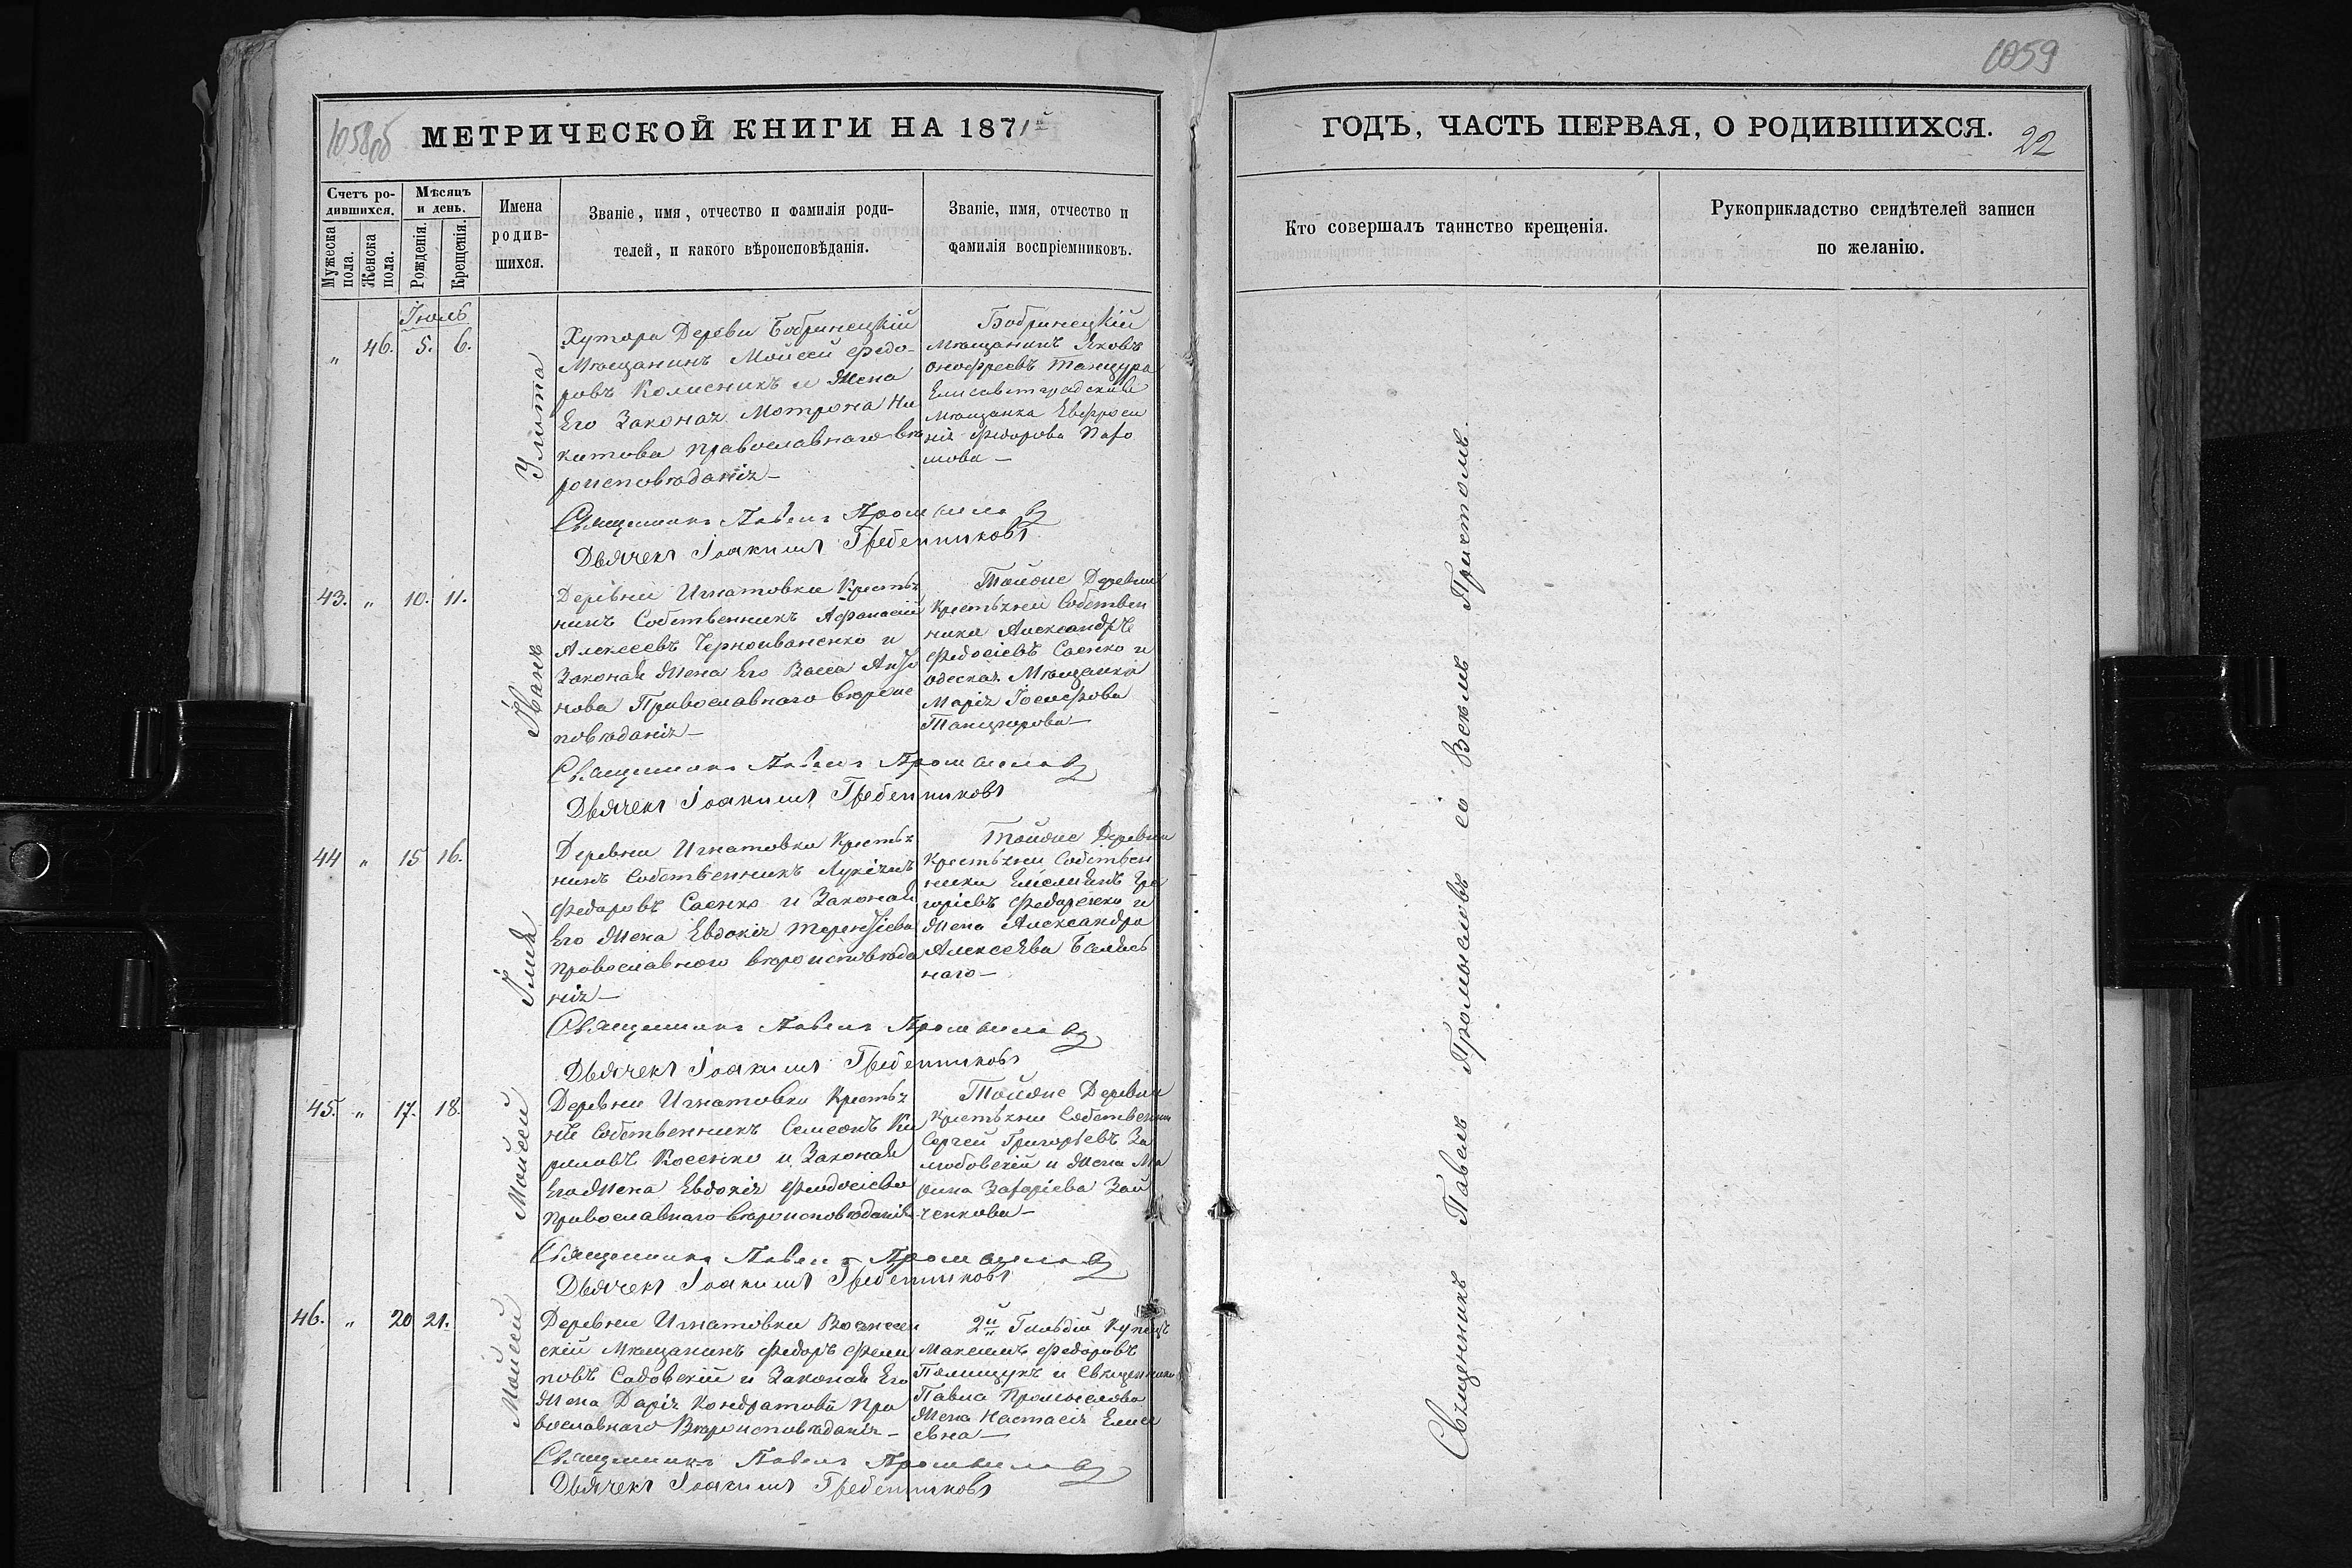 1058об
МЕТРИЧЕСКОЙ КНИГИ НА 1871й
Счетъ ро-
дившихся.
Мѣсяцъ
и день.
Мужеска
пола.
Женска
пола.
Рожденія.
Крещенія.
Имена
родив-
шихся.
Званіе, имя, отчество и фамилія роди-
телей, и какого вѣроисповѣданія.
Званіе, имя, отчество и
фамилія воспріемниковъ.
Іюль
„ 46. 5. 6.
Улита
Хутора Дереви Бобринецкій
Мѣщанинъ Мойсей Федо-
ровъ Колисникъ и Жена
Его Законая Мотрона Ни
китова Православнаго вѣ
роисповѣданія —
Бобринецкій
Мѣщанинъ Яковъ
Онофреевъ Танцура
Елисаветградская
Мѣщанка Евфроси
нія Федорова
мова —
Священникъ Павелъ Промысловъ
Дьячекъ Іоакимъ Гребенниковъ
43. „ 10. 11.
Іванъ
Деревни Игнатовки Крестья
нинъ Собственникъ Афанасій
Алексеевъ Черноиваненко и
Законая Жена Его Васса
нова Православнаго вѣроис
повѣданія —
Тойже Деревни
Крестьяни Собствен
ники Александръ
Федосіевъ Саенко и
Одеская Мѣщанка
Марія Іосифова
Танцюрова —
Священникъ Павелъ Промысловъ
Дьячекъ Іоакимъ Гребенниковъ
44 „ 15 16.
Ілія
Деревни Игнатовки Крестья
нинъ Собственникъ Лукіянъ
Федоровъ Саенко и Законая
Его Жена Евдокія Терентіева
Православного вѣроисповѣда
нія —
Тойже Деревни
Крестьяни Собствен
ники Емелиянъ Гри
горіевъ Федоренко и
Жена Александра
Алексеева
наго —
Священникъ Павелъ Промысловъ
Дьячекъ Іоакимъ Гребенниковъ
45. „ 17. 18.
Мойсей
Деревни Игнатовки Крестья
нѣ Собственникъ Семеонъ Ки
риловъ Косенко и Законая
Его Жена Евдокія Феодосіева
Православнаго вѣроисповѣданія
Тойже Деревни
Крестьяни Собственни
Сергей Григоріевъ За
любовскій и Жена Ма
рина Захаріева Зай
ченкова —
Священникъ Павелъ Промысловъ
Дьячекъ Іоакимъ Гребенниковъ
46. „ 20 21.
Мойсей
Деревни Игнатовки Вознесен
скій Мѣщанинъ Федоръ Фели
повъ Садовскій и Законая Его
Жена Дарія Кондратова Пра
вославнаго Вѣроисповѣданія —
2й Гильдіи Купецъ
Максимъ Федоровъ
Полищукъ и Священника
Павла Промыслова
Жена Настасія Елисе
евна —
Священникъ Павелъ Промысловъ
Дьячекъ Іоакимъ Гребенниковъ
1059
ГОДЪ, ЧАСТЬ ПЕРВАЯ, О РОДИВШИХСЯ.
22
Кто совершалъ таинство крещенія.
Рукоприкладство свидѣтелей записи
по желанію.
Священникъ Павелъ Промысловъ со Всѣмъ Притомъ.